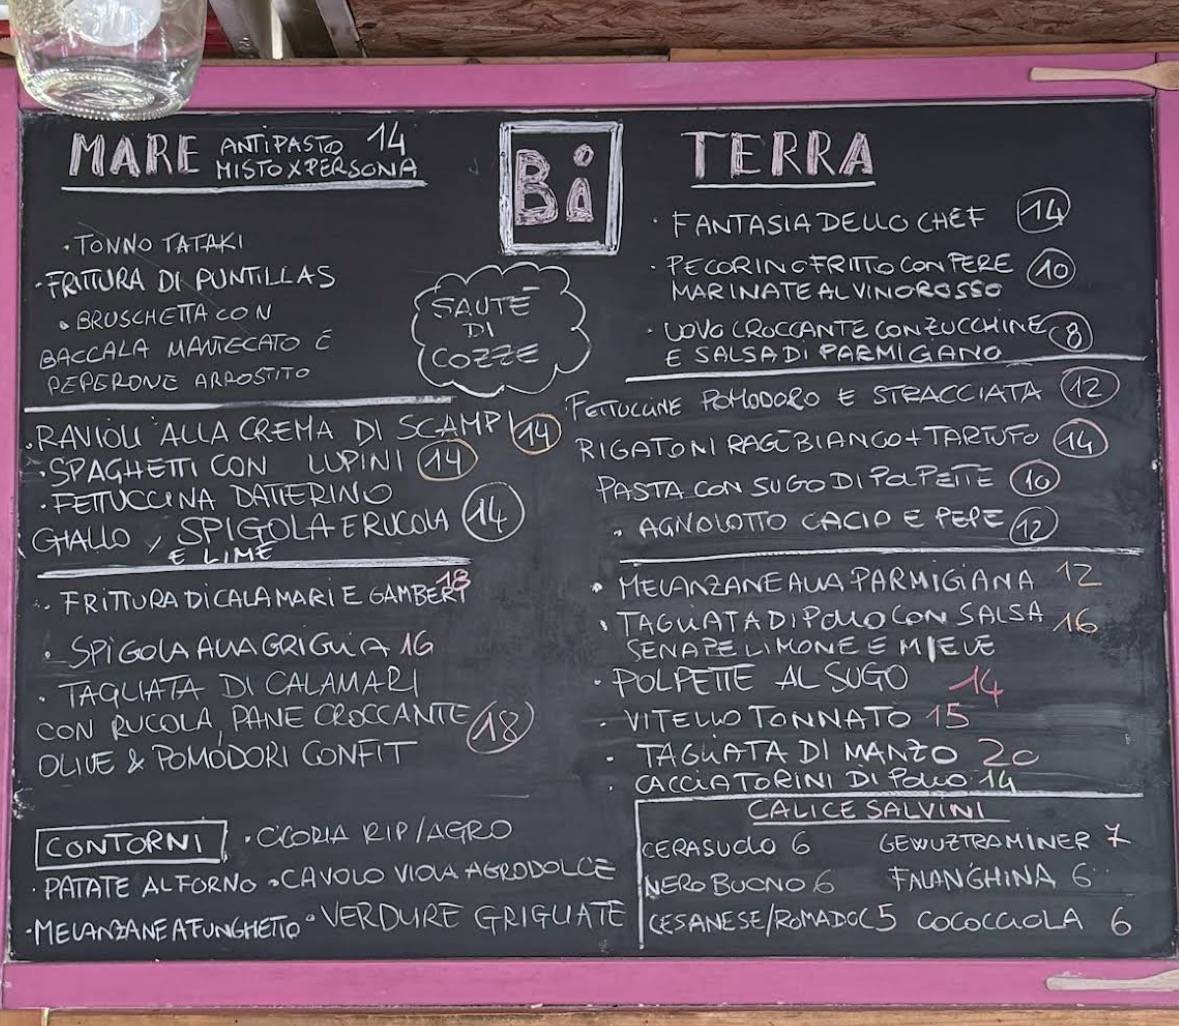 MARE ANTIPASTO 14
MISTO X PERSONA
• TONNO TATAKI
• FRITTURA DI PUNTILLAS
• BRUSCHETTA CON
BACCALA MANTECATO E
PEPERONE ARROSTITO
• RAVIOLI ALLA CREMA DI SCAMPI 14
• SPAGHETTI CON LUPINI 14
• FETTUCCINA DATTERINO
GIALLO, SPIGOLA E RUCOLA 14
E LIME
• FRITTURA DI CALAMARI E GAMBERI 18
• SPIGOLA ALLA GRIGLIA 16
• TAGLIATA DI CALAMARI
CON RUCOLA, PANE CROCCANTE 18
OLIVE & POMODORI CONFIT
CONTORNI • CICORIA RIP/AGRO
• PATATE AL FORNO • CAVOLO VIOLA AGRODOLCE
• MELANZANE A FUNGHETTO • VERDURE GRIGLIATE
Bi
SAUTÈ
DI
COZZE
TERRA
• FANTASIA DELLO CHEF 14
• PECORINO FRITTO CON PERE 10
MARINATE AL VINO ROSSO
• UOVO CROCCANTE CON ZUCCHINE 8
E SALSA DI PARMIGIANO
• FETTUCCINE POMODORO E STRACCIATA 12
RIGATONI RAGÙ BIANCO + TARTUFO 14
PASTA CON SUGO DI POLPETTE 10
• AGNOLOTTO CACIO E PEPE 12
• MELANZANE ALLA PARMIGIANA 12
• TAGLIATA DI POLLO CON SALSA 16
SENAPE LIMONE E MIELE
• POLPETTE AL SUGO 14
• VITELLO TONNATO 15
• TAGLIATA DI MANZO 20
• CACCIATORINI DI POLLO 14
CALICE SALVINI
CERASUOLO 6 GEWUZTRAMINER 7
NERO BUONO 6 FALANGHINA 6
CESANESE/ROMADOC 5 COCOCCIOLA 6